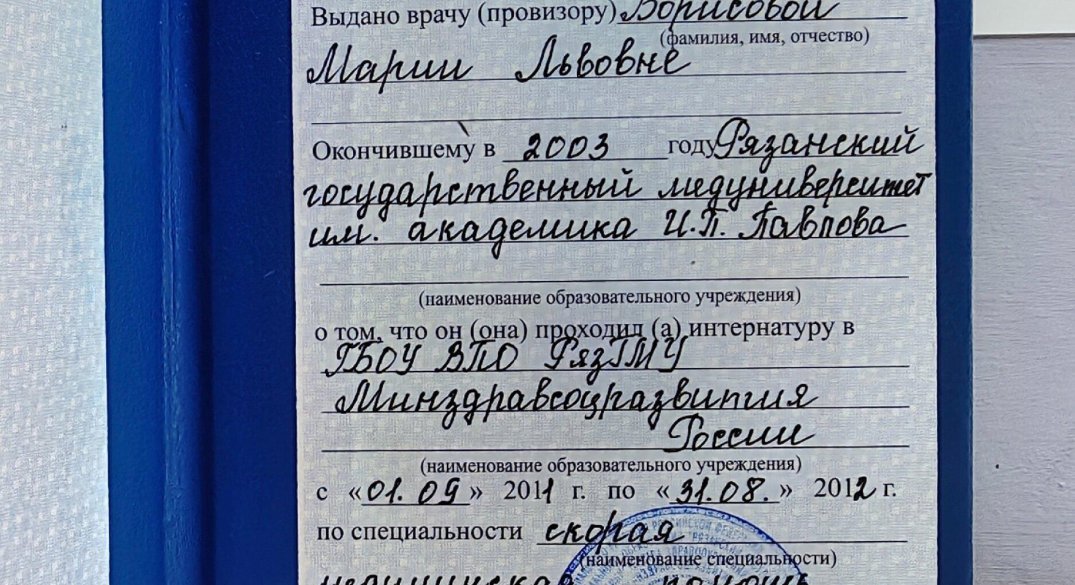 Выдано врачу (провизору) Борисовой
(фамилия, имя, отчество)
Марии Львовне
Окончившему в 2003 году Рязанский
государственный медуниверситет
им. академика И.П. Павлова
(наименование образовательного учреждения)
о том, что он (она) проходил (а) интернатуру в
ГБОУ ВПО РязГМУ
Минздравсоцразвития
России
(наименование образовательного учреждения)
с «01.09» 2011 г. по «31.08.» 2012 г.
по специальности скорая
(наименование специальности)
медицинская помощь